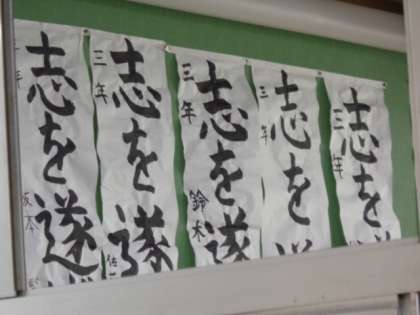 志を遂
三年
鈴木
志を遂
三年
志を
三年
志を遂
三年
坂本
志を遂
三年